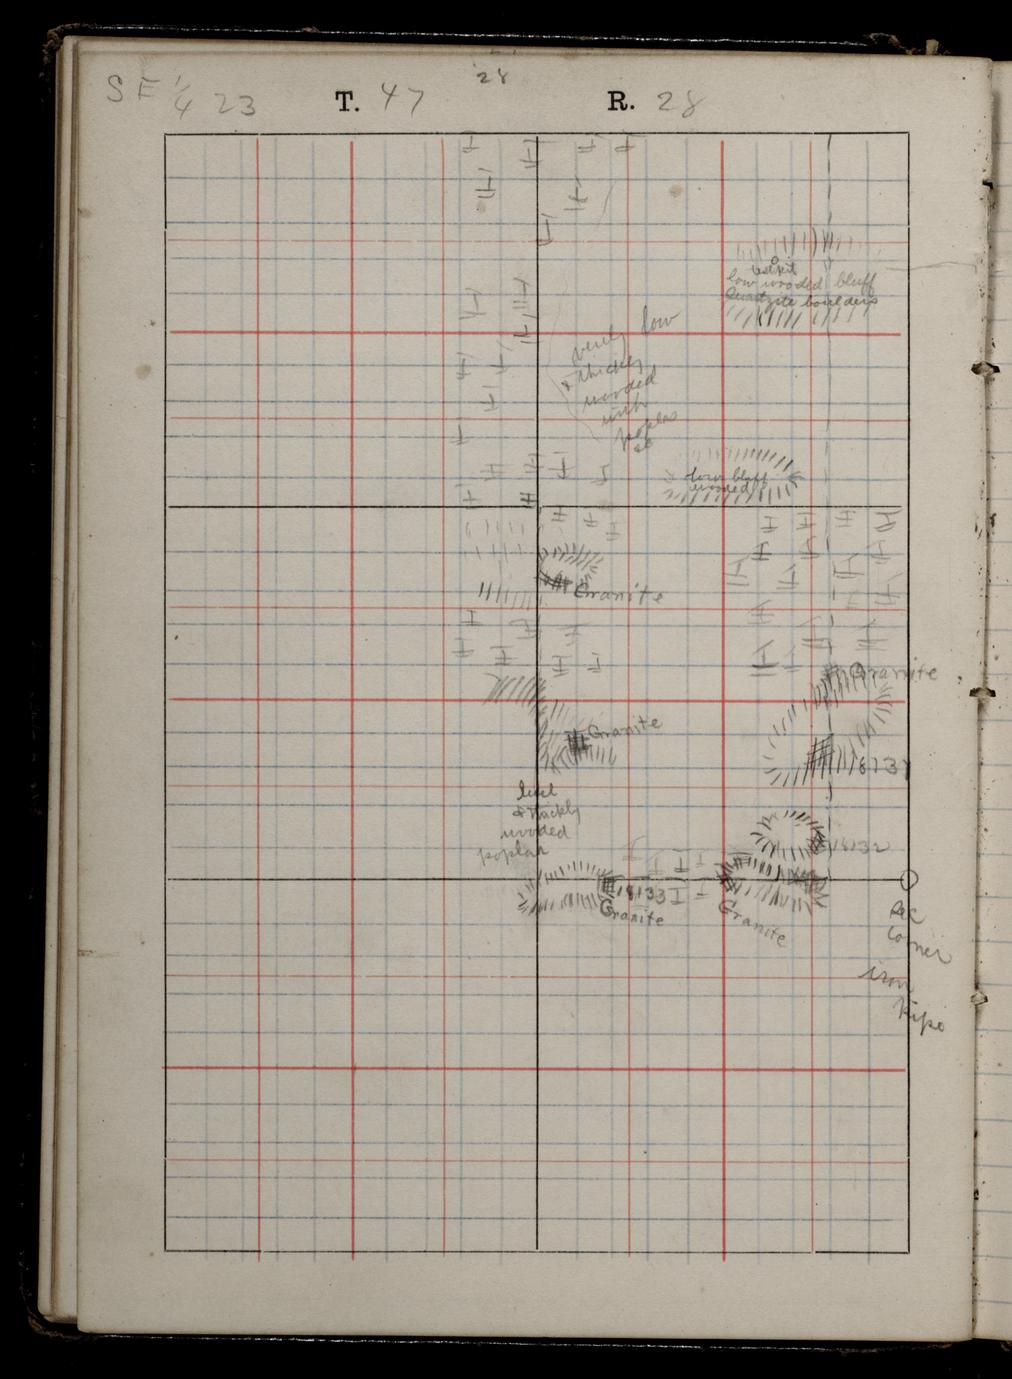 28
SE 1/4 23 T. 47 R. 28
testpit
low wooded bluff
Quartzite boulders
very low
& thickly
wooded
with
poplar
low bluff
wooded
Granite
Granite
Granite
18131
level
& thickly
wooded
poplar
18132
18133
Granite
Granite
Sec
Corner
iron
pipe